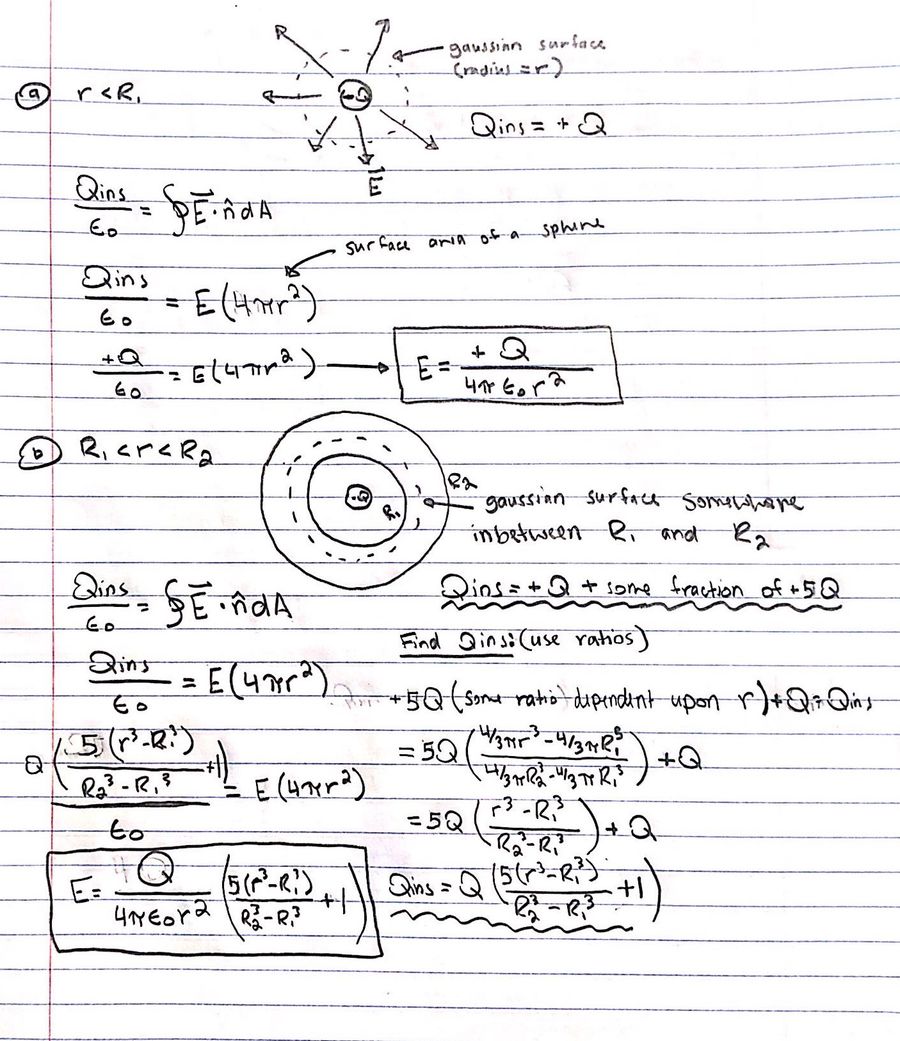 gaussian surface
(radius = r)
ⓐ r < R₁
+Q
Qins = + Q
E⃗
Qins/ϵ₀ = ∮E⃗·n̂dA
surface area of a sphere
Qins/ϵ₀ = E(4πr²)
+Q/ϵ₀ = E(4πr²) → E = +Q/4πϵ₀r²
ⓑ R₁ < r < R₂
R₂
+Q
R₁
gaussian surface somewhere
inbetween R₁ and R₂
Qins/ϵ₀ = ∮E⃗·n̂dA
Qins = +Q + some fraction of +5Q
Find Qins: (use ratios)
Qins/ϵ₀ = E(4πr²)
+5Q (some ratio dependent upon r) + Q = Qins
= 5Q (4/3πr³ - 4/3πR₁³ / 4/3πR₂³ - 4/3πR₁³) + Q
Q(5(r³-R₁³)/R₂³-R₁³ +1)/ϵ₀ = E(4πr²)
= 5Q (r³-R₁³/R₂³-R₁³) + Q
E = Q/4πϵ₀r² (5(r³-R₁³)/R₂³-R₁³ + 1)
Qins = Q (5(r³-R₁³)/R₂³-R₁³ + 1)